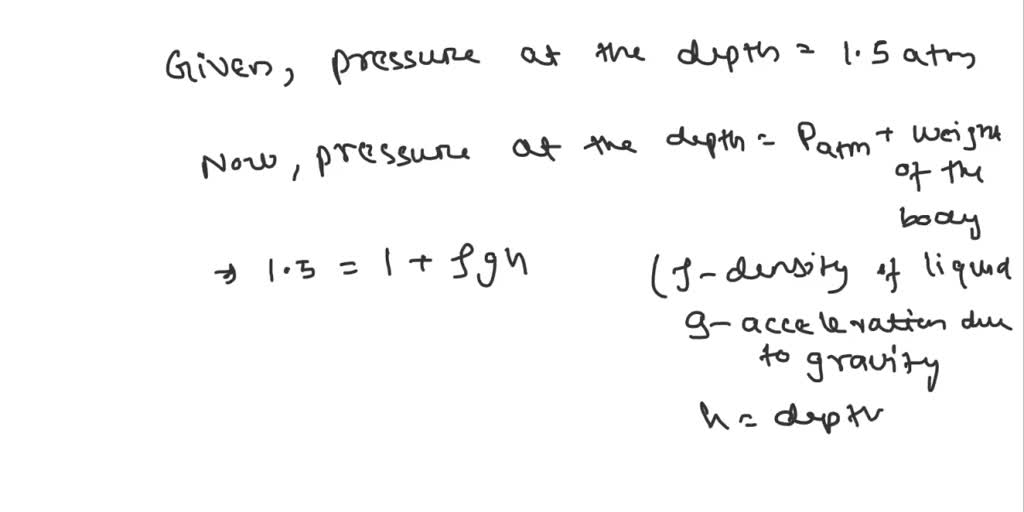 Given, pressure at the depth = 1.5 atm
Now, pressure at the depth = Patm + weight
of the
body
→ 1.5 = 1 + ρgh
(ρ-density of liquid
g- acceleration due
to gravity
h = depth